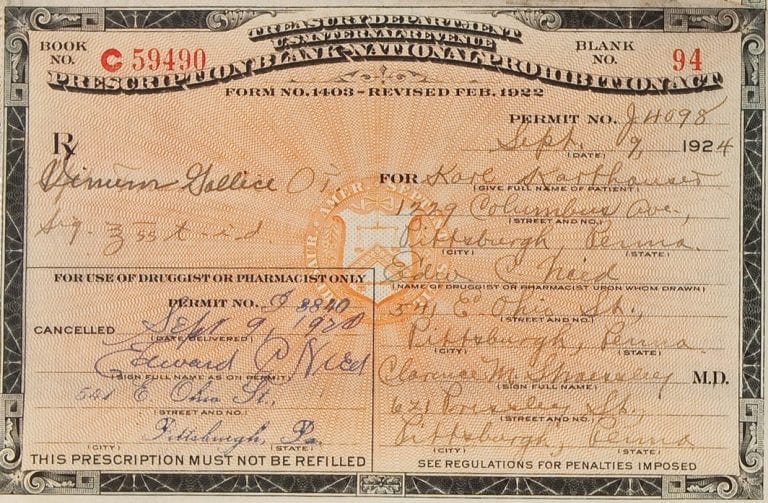 TREASURY DEPARTMENT
U.S. INTERNAL REVENUE
PRESCRIPTION BLANK-NATIONAL PROHIBITION ACT
FORM NO. 1403-REVISED FEB. 1922
BOOK NO. C 59490
BLANK NO. 94
PERMIT NO. J4098
Sept. 9, 1924
(DATE)
Rx
Sig. ℥ss t-i-d.
FOR Karl Karthauser
(GIVE FULL NAME OF PATIENT)
1729 Columbus Ave.,
(STREET AND NO.)
Pittsburgh, Penna.
(CITY) (STATE)
Edw C. Nied
(NAME OF DRUGGIST OR PHARMACIST UPON WHOM DRAWN)
541 E. Ohio St.,
(STREET AND NO.)
Pittsburgh, Penna.
(CITY) (STATE)
Clarence M.
(SIGN FULL NAME) M.D.
St.,
(STREET AND NO.)
Pittsburgh, Penna
(CITY) (STATE)
SEE REGULATIONS FOR PENALTIES IMPOSED
FOR USE OF DRUGGIST OR PHARMACIST ONLY
PERMIT NO. J 8840
CANCELLED Sept 9, 1924
(DATE DELIVERED)
Edward C Nied
(SIGN FULL NAME AS ON PERMIT)
541 E Ohio St.,
(STREET AND NO.)
Pittsburgh, Pa.
(CITY) (STATE)
THIS PRESCRIPTION MUST NOT BE REFILLED